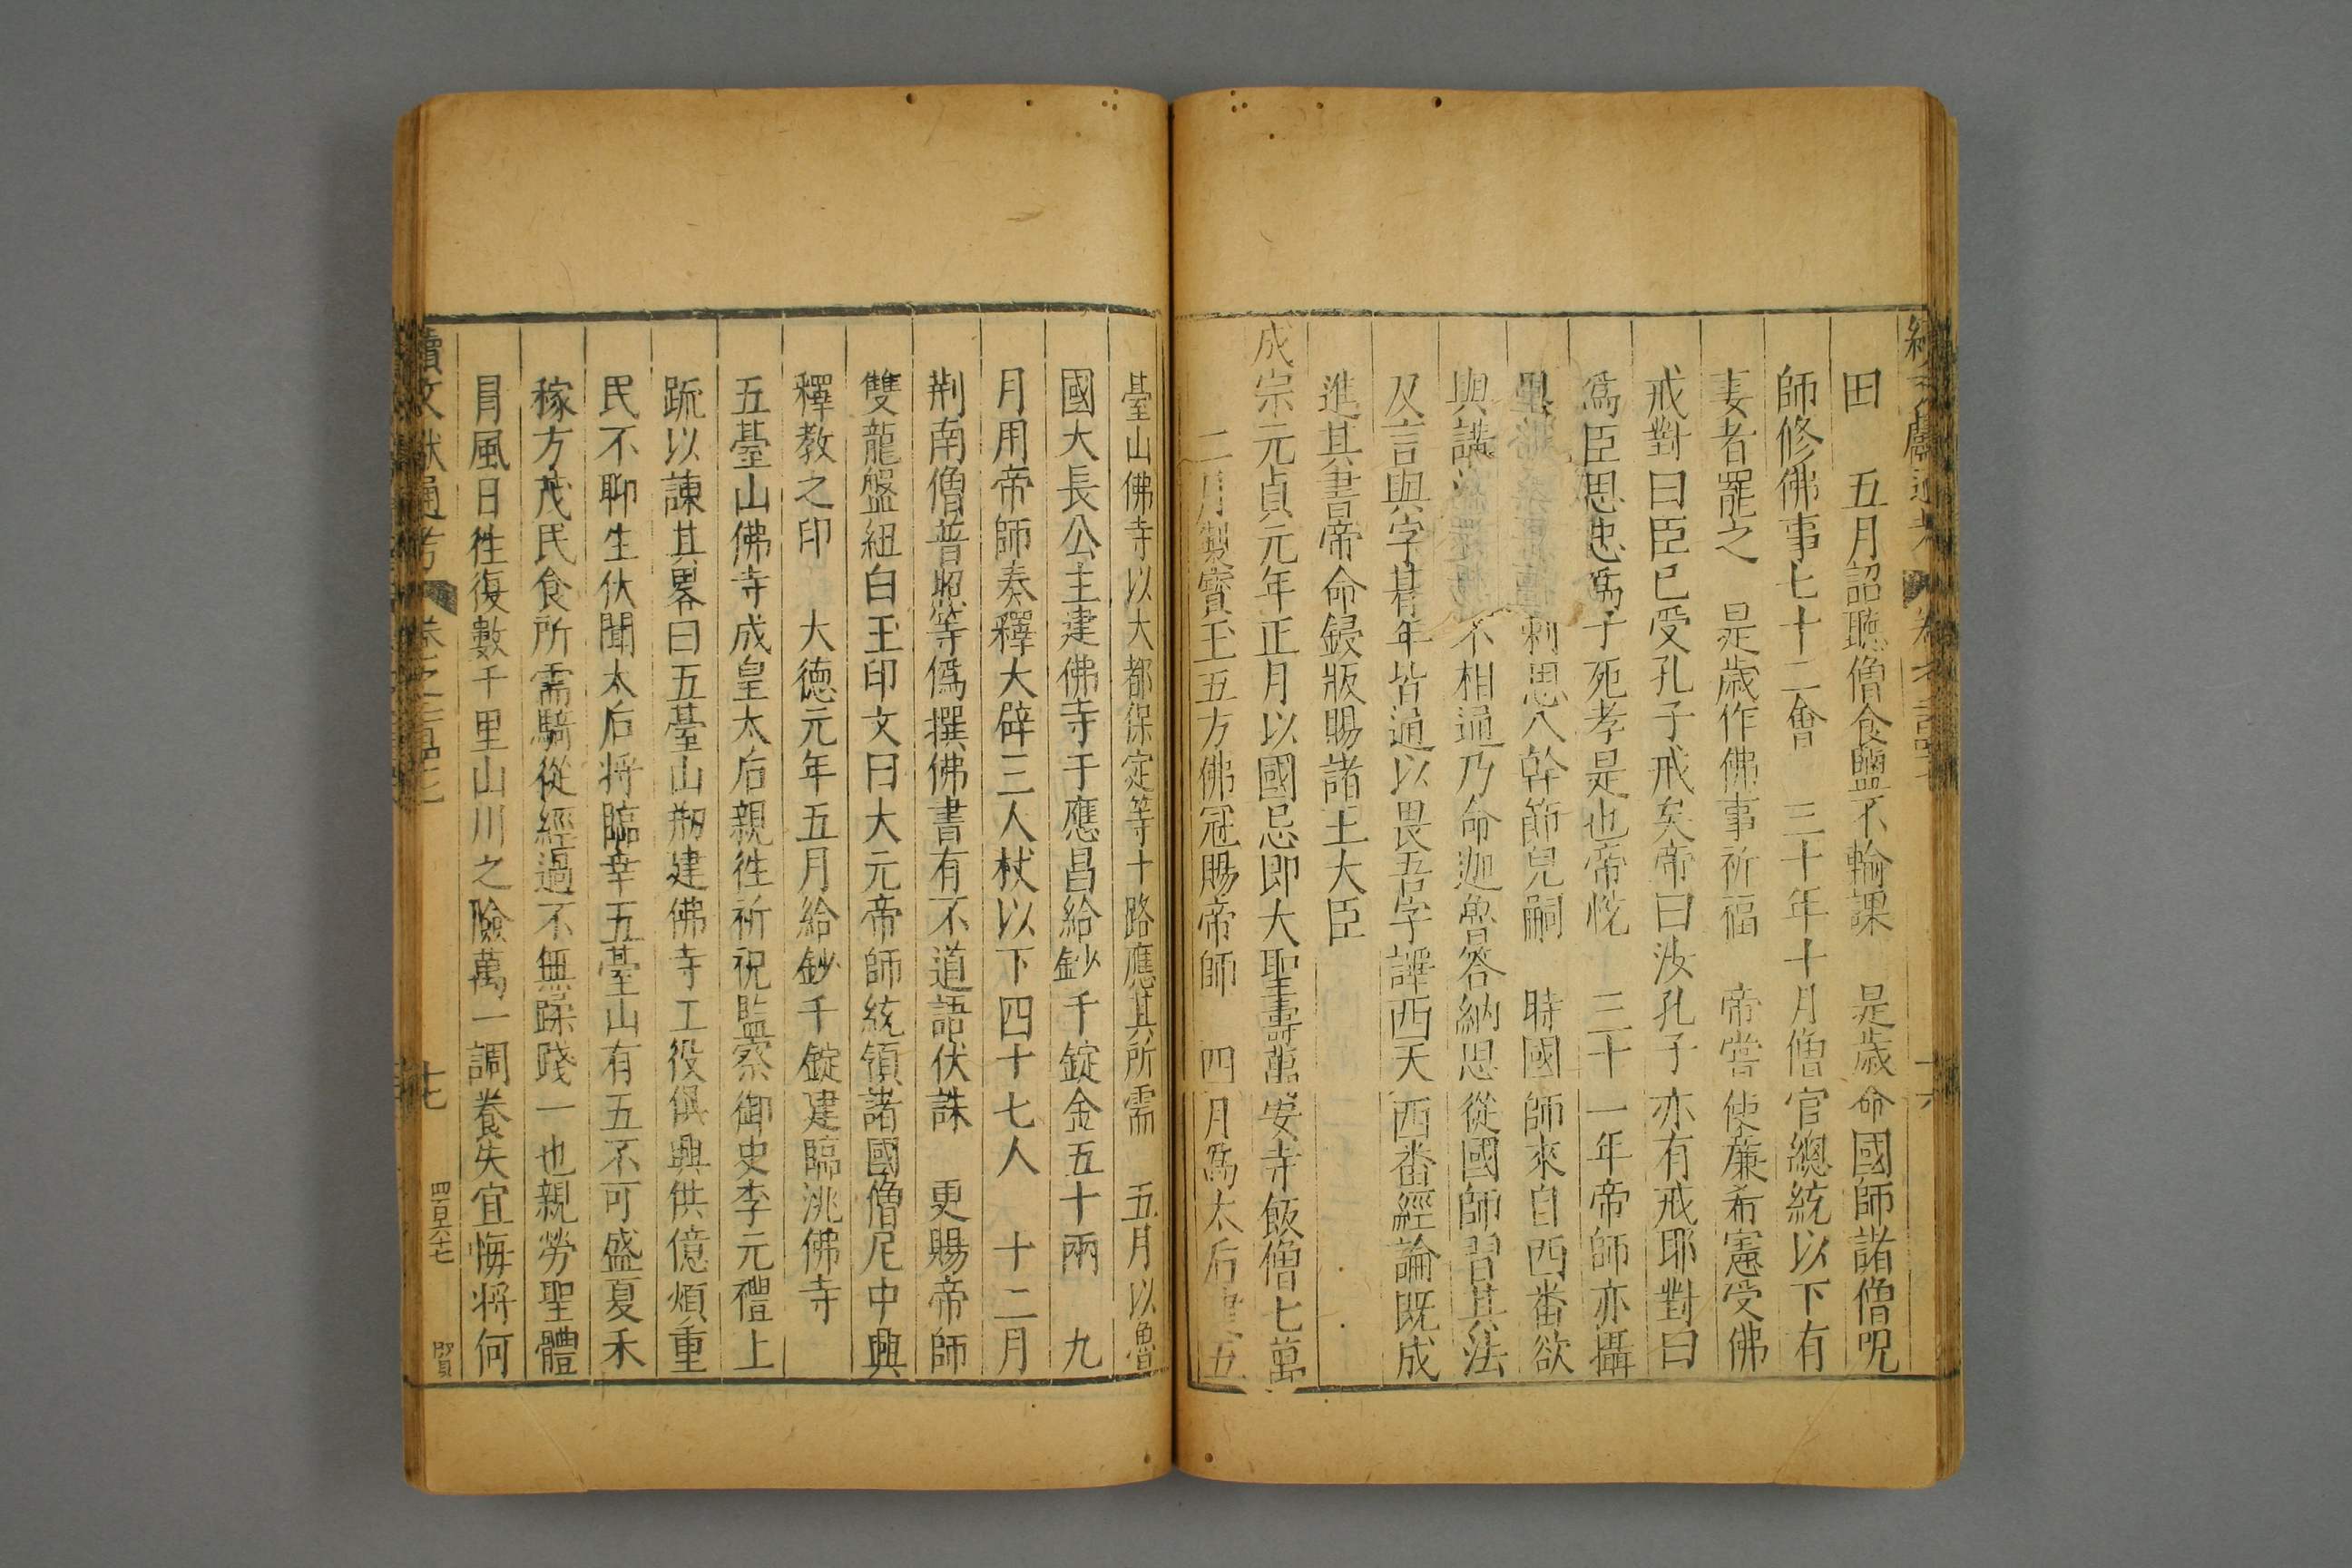 田　五月詔聽僧食鹽不輸課　是歲命國師諸僧呪
師修佛事七十二會　三十年十月僧官總統以下有
妻者罷之　是歲作佛事祈福　帝嘗使廉希憲受佛
戒對曰臣已受孔子戒矣帝曰汝孔子亦有戒耶對曰
爲臣思忠爲子死孝是也帝悅　三十一年帝師亦攝
思八幹節兒嗣　時國師來自西番欲
與講　不相通乃命迦魯答納思從國師習其法
及言與字朞年皆通以畏吾字譯西天西番經論既成
進其書帝命鋟版賜諸王大臣
成宗元貞元年正月以國忌即大聖壽萬安寺飯僧七萬
二月製寶玉五方佛冠賜帝師　四月爲太后建五
臺山佛寺以大都保定等十路應其所需　五月以魯
國大長公主建佛寺于應昌給鈔千錠金五十兩　九
月用帝師奏釋大辟三人杖以下四十七人　十二月
荆南僧普照等僞撰佛書有不道語伏誅　更賜帝師
雙龍盤紐白玉印文曰大元帝師統領諸國僧尼中興
釋教之印　大德元年五月給鈔千錠建臨洮佛寺
五臺山佛寺成皇太后親徃祈祝監察御史李元禮上
疏以諫其畧曰五臺山刱建佛寺工役俱興供億煩重
民不聊生伏聞太后將臨幸五臺山有五不可盛夏禾
稼方茂民食所需騎從經過不無蹂踐一也親勞聖體
冐風日徃復數千里山川之險萬一調養失宜悔將何
續文獻通考
十七